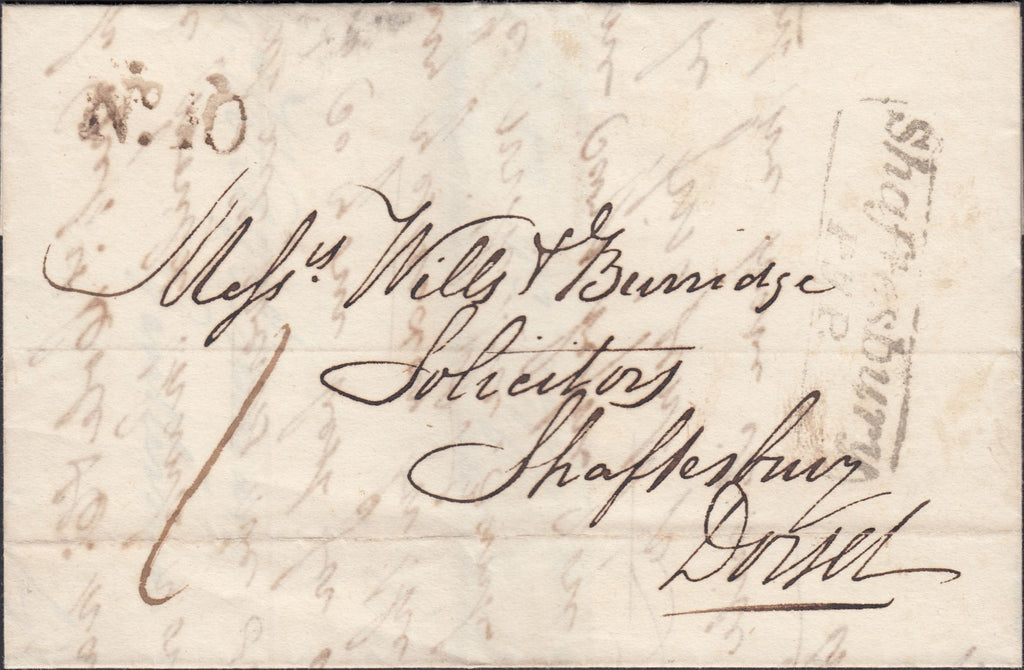 No. 10
Messrs. Wills & Burridge
Solicitors
Shaftesbury
Dorset
1
Shaftesbury
P.P